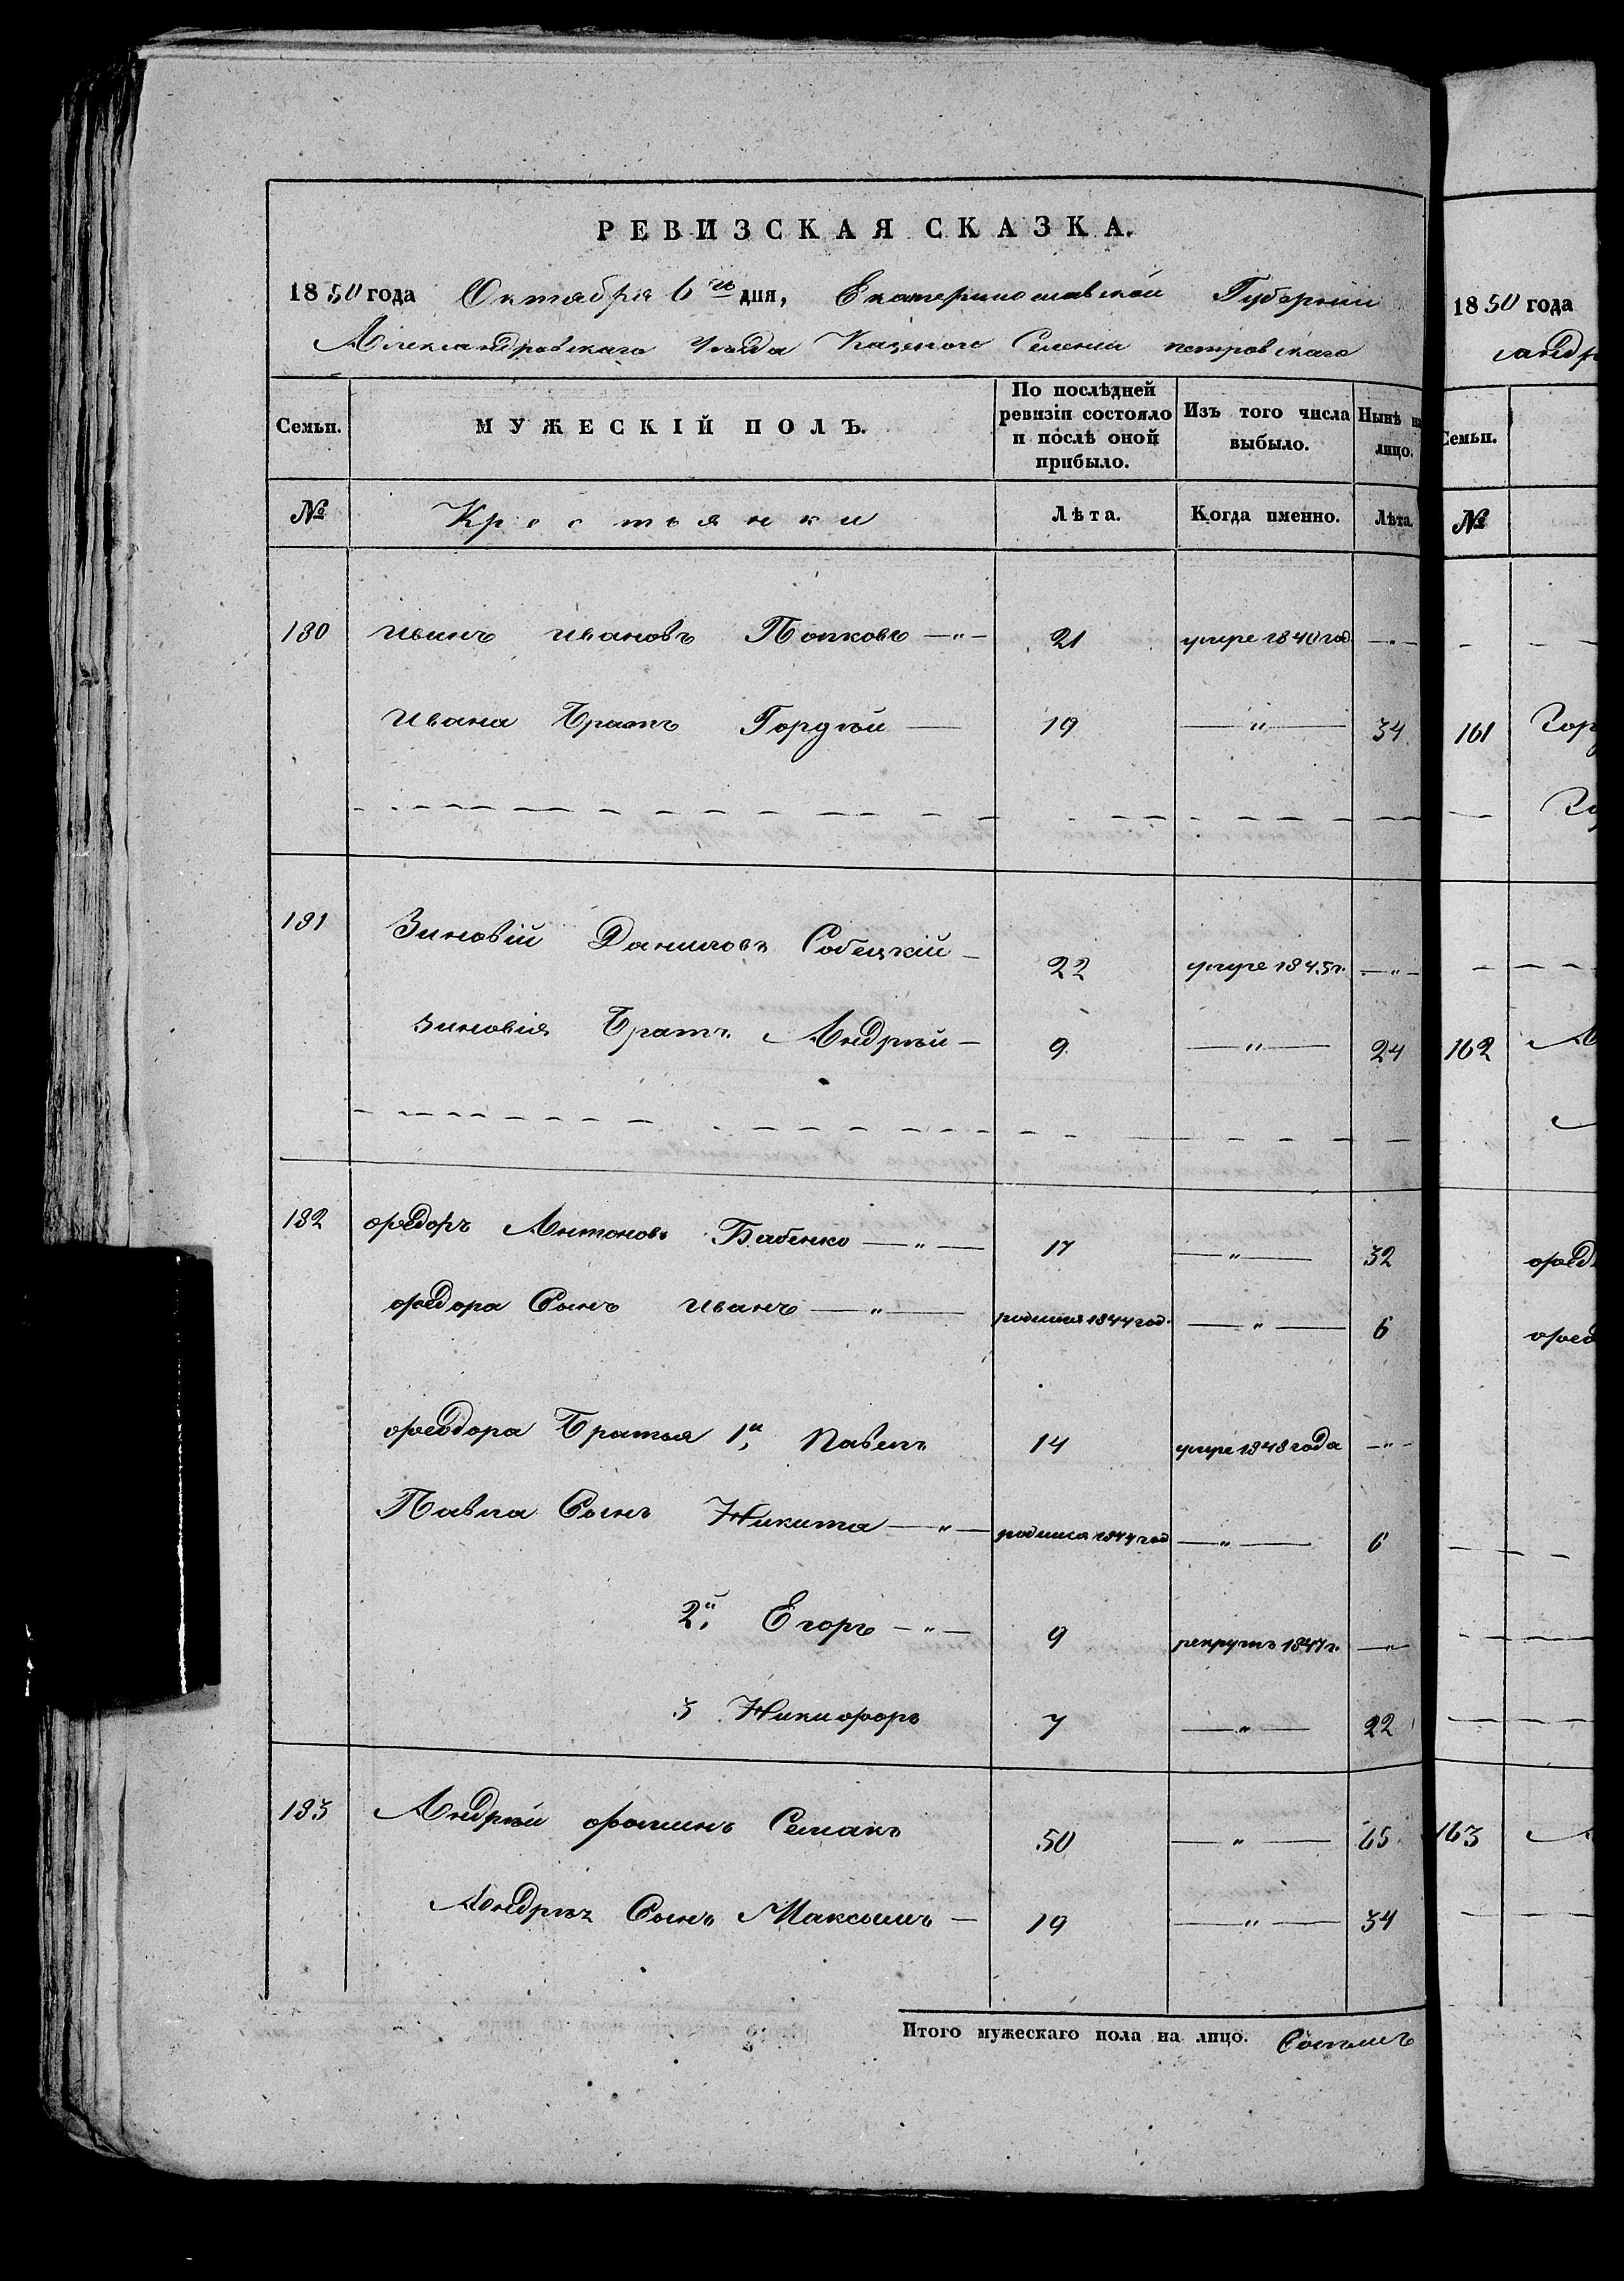 РЕВИЗСКАЯ СКАЗКА.
1850 года Октября 6го дня, Екатеринославской Губернии
Александровскаго Уезда Казеного Селения петровскаго
Семьи.
МУЖЕСКІЙ ПОЛЪ.
По послѣдней
ревизіи состояло
и послѣ оной
прибыло.
Изъ того числа
выбыло.
Нынѣ на
лицо.
№
Крестьянки
Лѣта.
Когда именно.
Лѣта.
180 Иванъ Ивановъ Попковъ —"— 21 умре 1840 год. —"—
Ивана Братъ Гордѣй — 19 —"— 34
181 Зиновій Даниловъ Собецкій — 22 умре 1845 г. —"—
Зиновія Братъ Андрѣй — 9 —"— 24
182 Ѳедоръ Антоновъ Бабенко —"— 17 —"— 32
Ѳедора Сынъ Иванъ —"— родился 1844 год. —"— 6
Ѳеодора Братья 1й, Павелъ 14 умре 1848 года —"—
Павла Сынъ Никита —"— родился 1844 год —"— 6
2й, Егоръ —"— 9 рекрутъ 1847 г. —"—
3 Никифоръ 7 —"— 22
183 Андрѣй Ѳоминъ Семакъ 50 —"— 65
Андрѣя Сынъ Максымъ — 19 —"— 34
Итого мужескаго пола на лицо.
1850 года
андр
Семьи.
№
161 Гор
Го
162 А
Ѳед
Ѳео
163 А